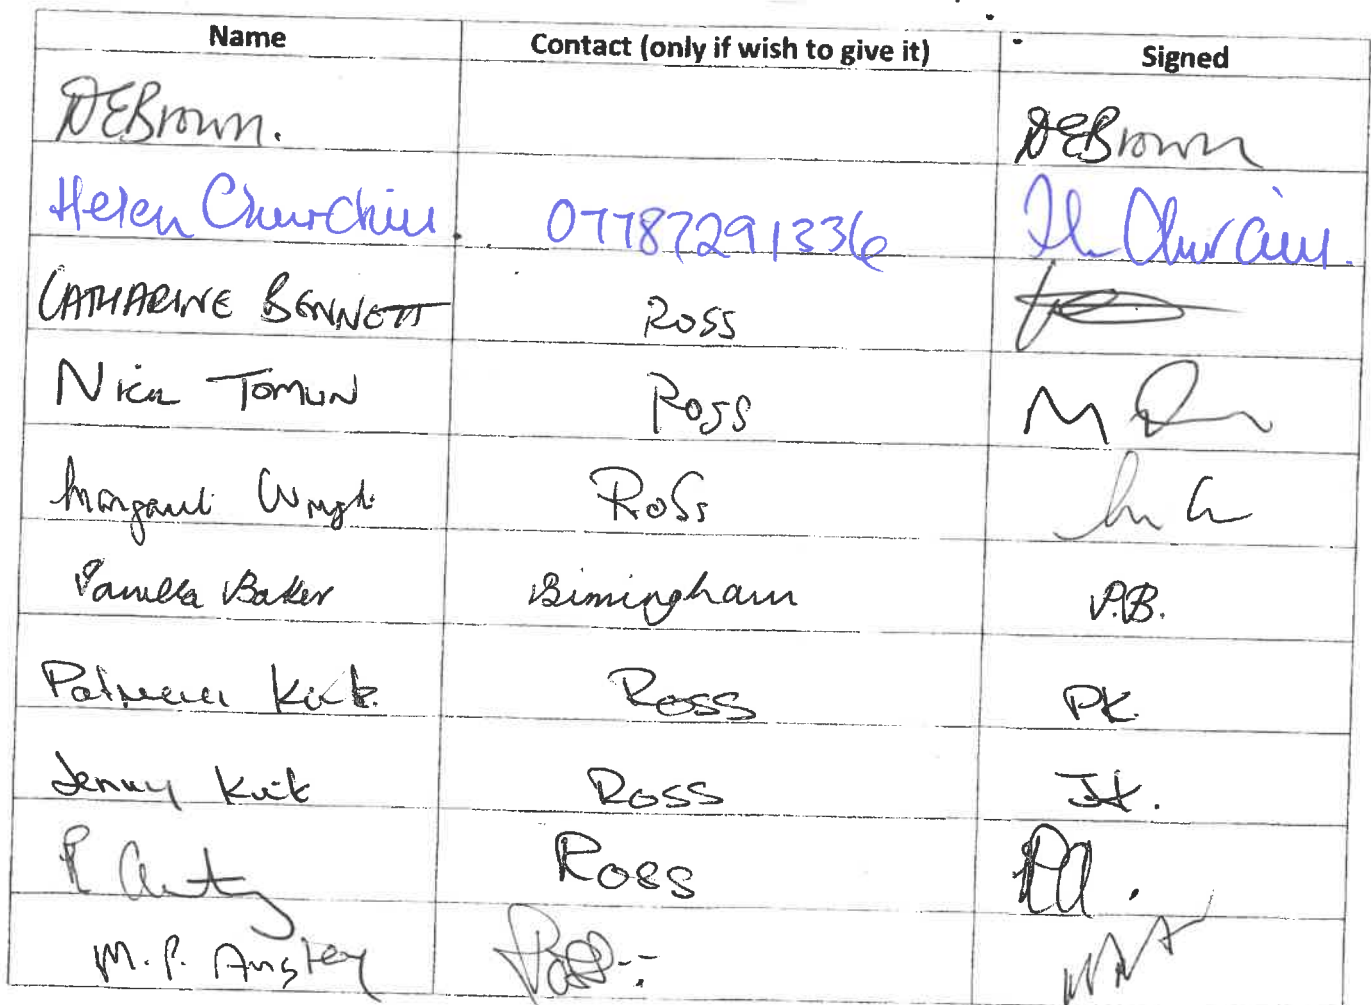 Name Contact (only if wish to give it) Signed
DEBrown. DEBrown
Helen Churchill 07787291336 Churchill.
CATHARINE BENNETT ROSS
Nick TOMLIN ROSS
Margaret Wright ROSS
Pamela Baker Bimingham P.B.
Patricia Kirk. ROSS PK.
Jenny Kirk ROSS JK.
P ROSS PA.
M.P. Anstey Ross